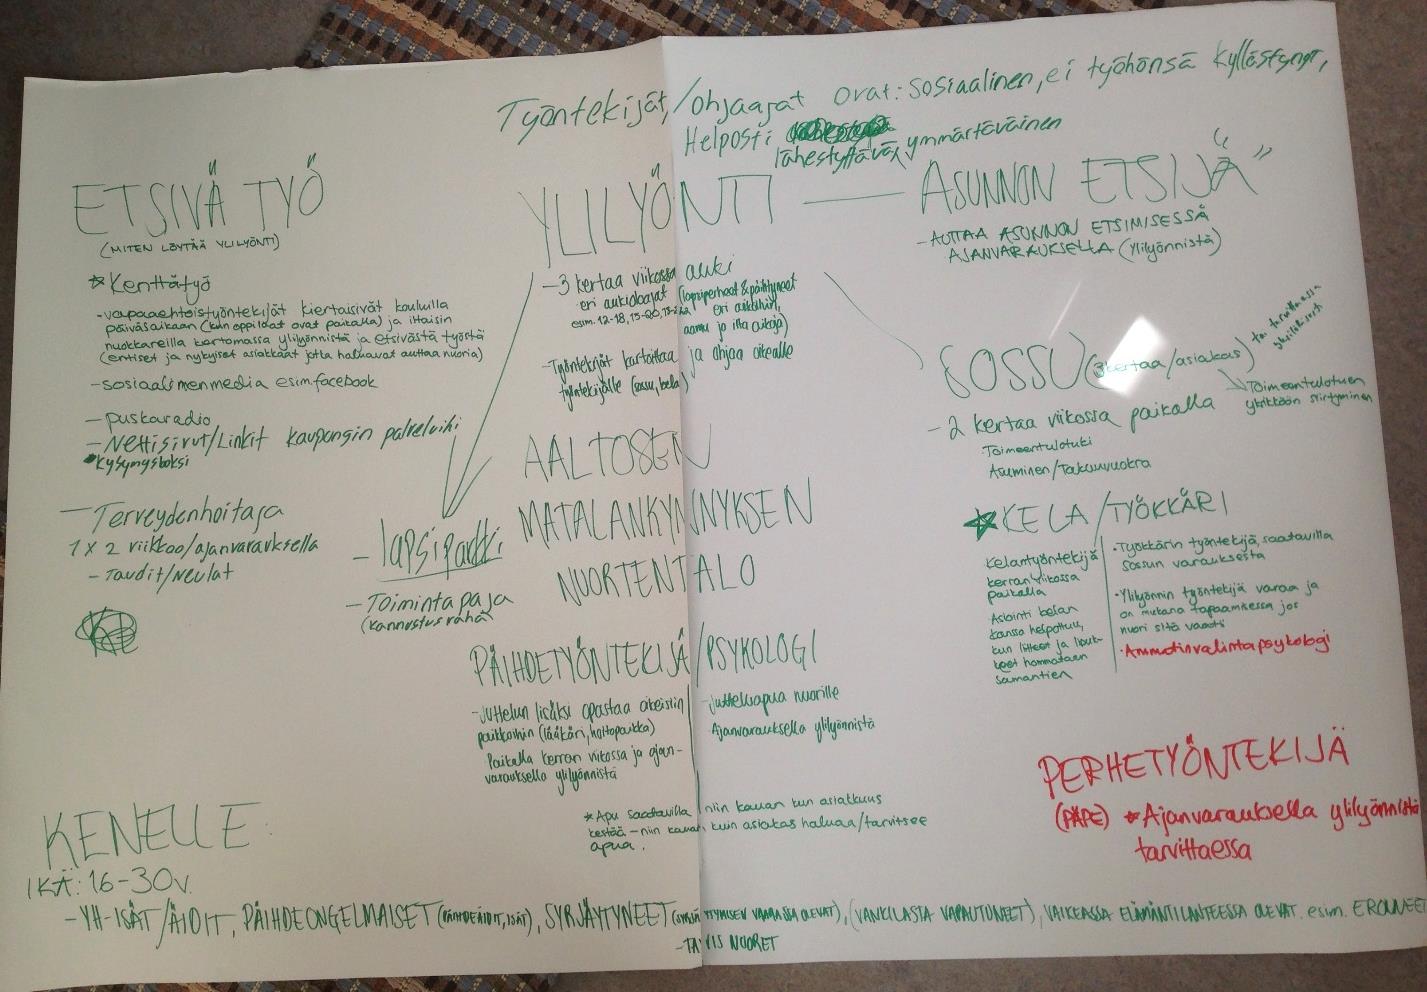 Työntekijät/ohjaajat ovat: sosiaalinen, ei työhönsä kyllästynyt,
Helposti
lähestyttävä, ymmärtäväinen
ETSIVÄ TYÖ
(MITEN LÖYTÄÄ YLILYÖNTI)
* Kenttätyö
- vapaaehtoistyöntekijät kiertäisivät kouluilla
päiväsaikaan (kun oppilaat ovat paikalla) ja iltaisin
nuokkareilla kertomassa ylilyönnistä ja etsivästä työstä
(entiset ja nykyiset asiakkaat jotka haluavat auttaa nuoria)
- sosiaalinenmedia esim. facebook
- puskaradio
- Nettisivut/Linkit kaupungin palveluihi
* kysymysboksi
- Terveydenhoitaja
1 x 2 viikkoo/ajanvarauksella
- Taudit/Neulat
YLILYÖNTI
- 3 kertaa viikossa auki
eri aukioloajat (lapsiperheet & päihtyneet
esim. 12-18, 15-20, eri aikoihin,
aamu ja ilta aikoja)
- Työntekijät kartoittaa ja ohjaa oikealle
työntekijälle (sossu, kela)
- lapsiparkki
- Toimintapaja
(kannustusraha)
AALTOSEN
MATALANKYNNYKSEN
NUORTENTALO
PÄIHDETYÖNTEKIJÄ/PSYKOLOGI
- Juttelun lisäksi opastaa oikeisiin
paikkoihin (lääkäri, hoitopaikka)
Paikalla kerran viikossa ja ajan-
varauksella ylilyönnistä
- Jutteluapua nuorille
Ajanvarauksella ylilyönnistä
* Apu saatavilla niin kauan kun asiakkuus
kestää - niin kauan kuin asiakas haluaa/tarvitsee
apua.
"ASUNNON ETSIJÄ"
- AUTTAA ASUNNON ETSIMISESSÄ
AJANVARAUKSELLA (Ylilyönnistä)
SOSSU (3 kertaa/asiakas) tai tarvittaessa
yksilöllisesti
Toimeentulotuen
yksikköön siirtyminen
- 2 kertaa viikossa paikalla
Toimeentulotuki
Asuminen/Takuuvuokra
* KELA/TYÖKKÄRI
Kelantyöntekijä
kerran viikossa
paikalla
Asiointi kelan
kanssa helpottuu,
kun liitteet ja
hommataan
samantien
· Työkkärin työntekijä, saatavilla
sossun varauksesta
· Ylilyönnin työntekijä varaa ja
on mukana tapaamisessa jos
nuori sitä vaatii
· Ammatinvalintapsykologi
PERHETYÖNTEKIJÄ
(PÄPE) * Ajanvarauksella ylilyönnistä
tarvittaessa
KENELLE:
IKÄ: 16-30v.
- YH-ISÄT/ÄIDIT, PÄIHDEONGELMAISET (PÄIHDEÄIDIT, ISÄT), SYRJÄYTYNEET (SYRJÄYTYMISEN VAARASSA OLEVAT), (VANKILASTA VAPAUTUNEET), VAIKEASSA ELÄMÄNTILANTEESSA OLEVAT. esim. ERONNEET
- TAVIS NUORET